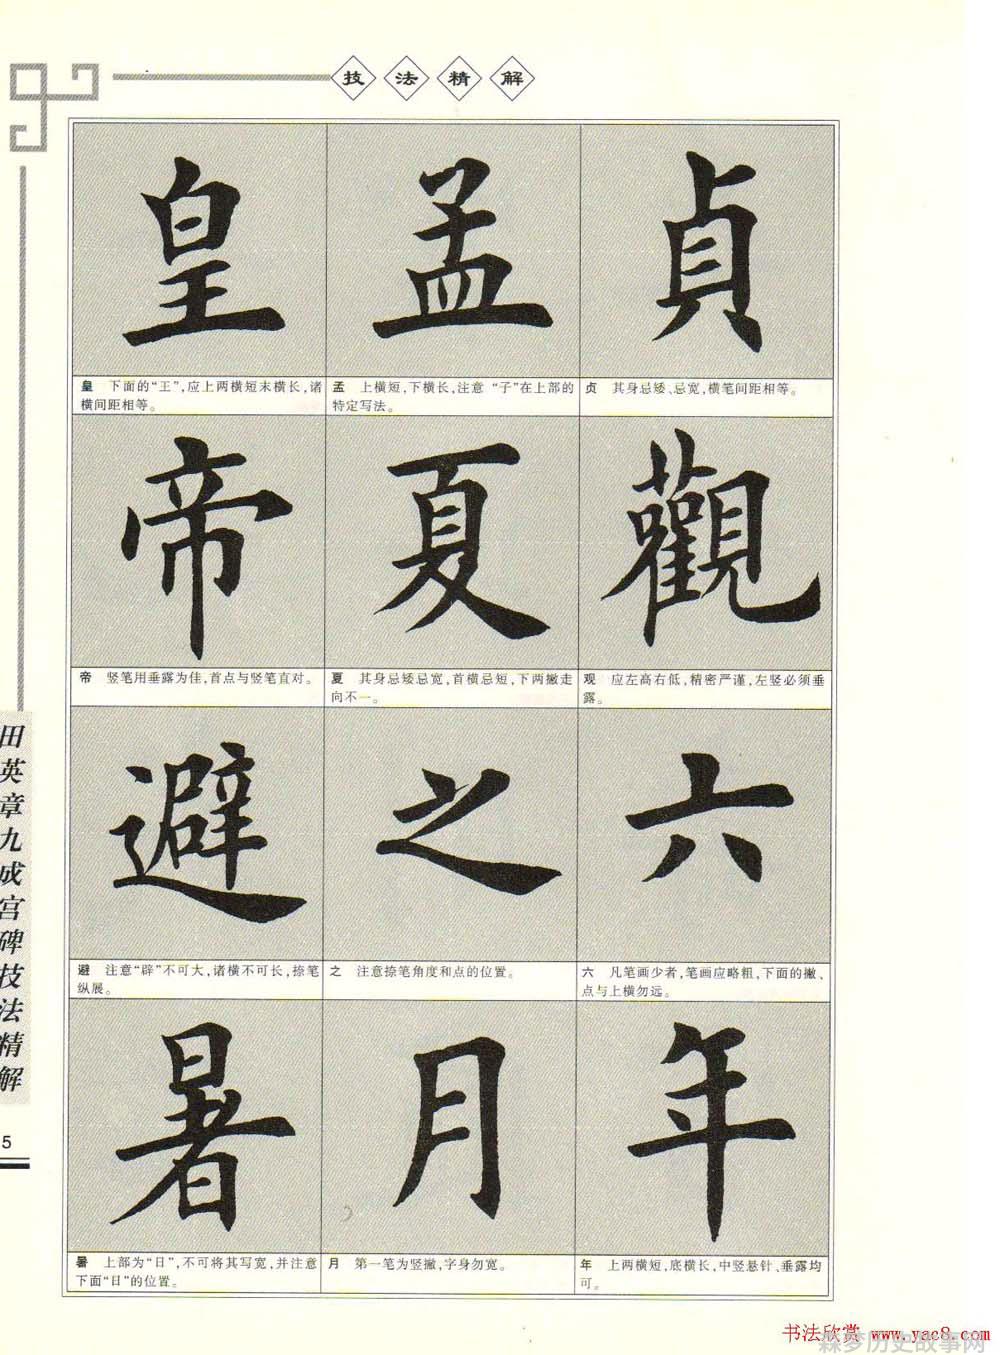 技法精解
皇 孟 貞
皇　下面的“王”,应上两横短末横长,诸
横间距相等。
孟　上横短,下横长,注意 “子”在上部的
特定写法。
贞　其身忌矮、忌宽,横笔间距相等。
帝 夏 觀
帝　竖笔用垂露为佳,首点与竖笔直对。
夏　其身忌矮忌宽,首横忌短,下两撇走
向不一。
观　应左高右低,精密严谨,左竖必须垂
露。
避 之 六
避　注意“辟”不可大,诸横不可长,捺笔
纵展。
之　注意捺笔角度和点的位置。
六　凡笔画少者,笔画应略粗,下面的撇、
点与上横勿远。
暑 月 年
暑　上部为“日”,不可将其写宽,并注意
下面“日”的位置。
月　第一笔为竖撇,字身勿宽。
年　上两横短,底横长,中竖悬针、垂露均
可。
田英章九成宫碑技法精解
5
书法欣赏 www.yac8.com
森梦历史故事网